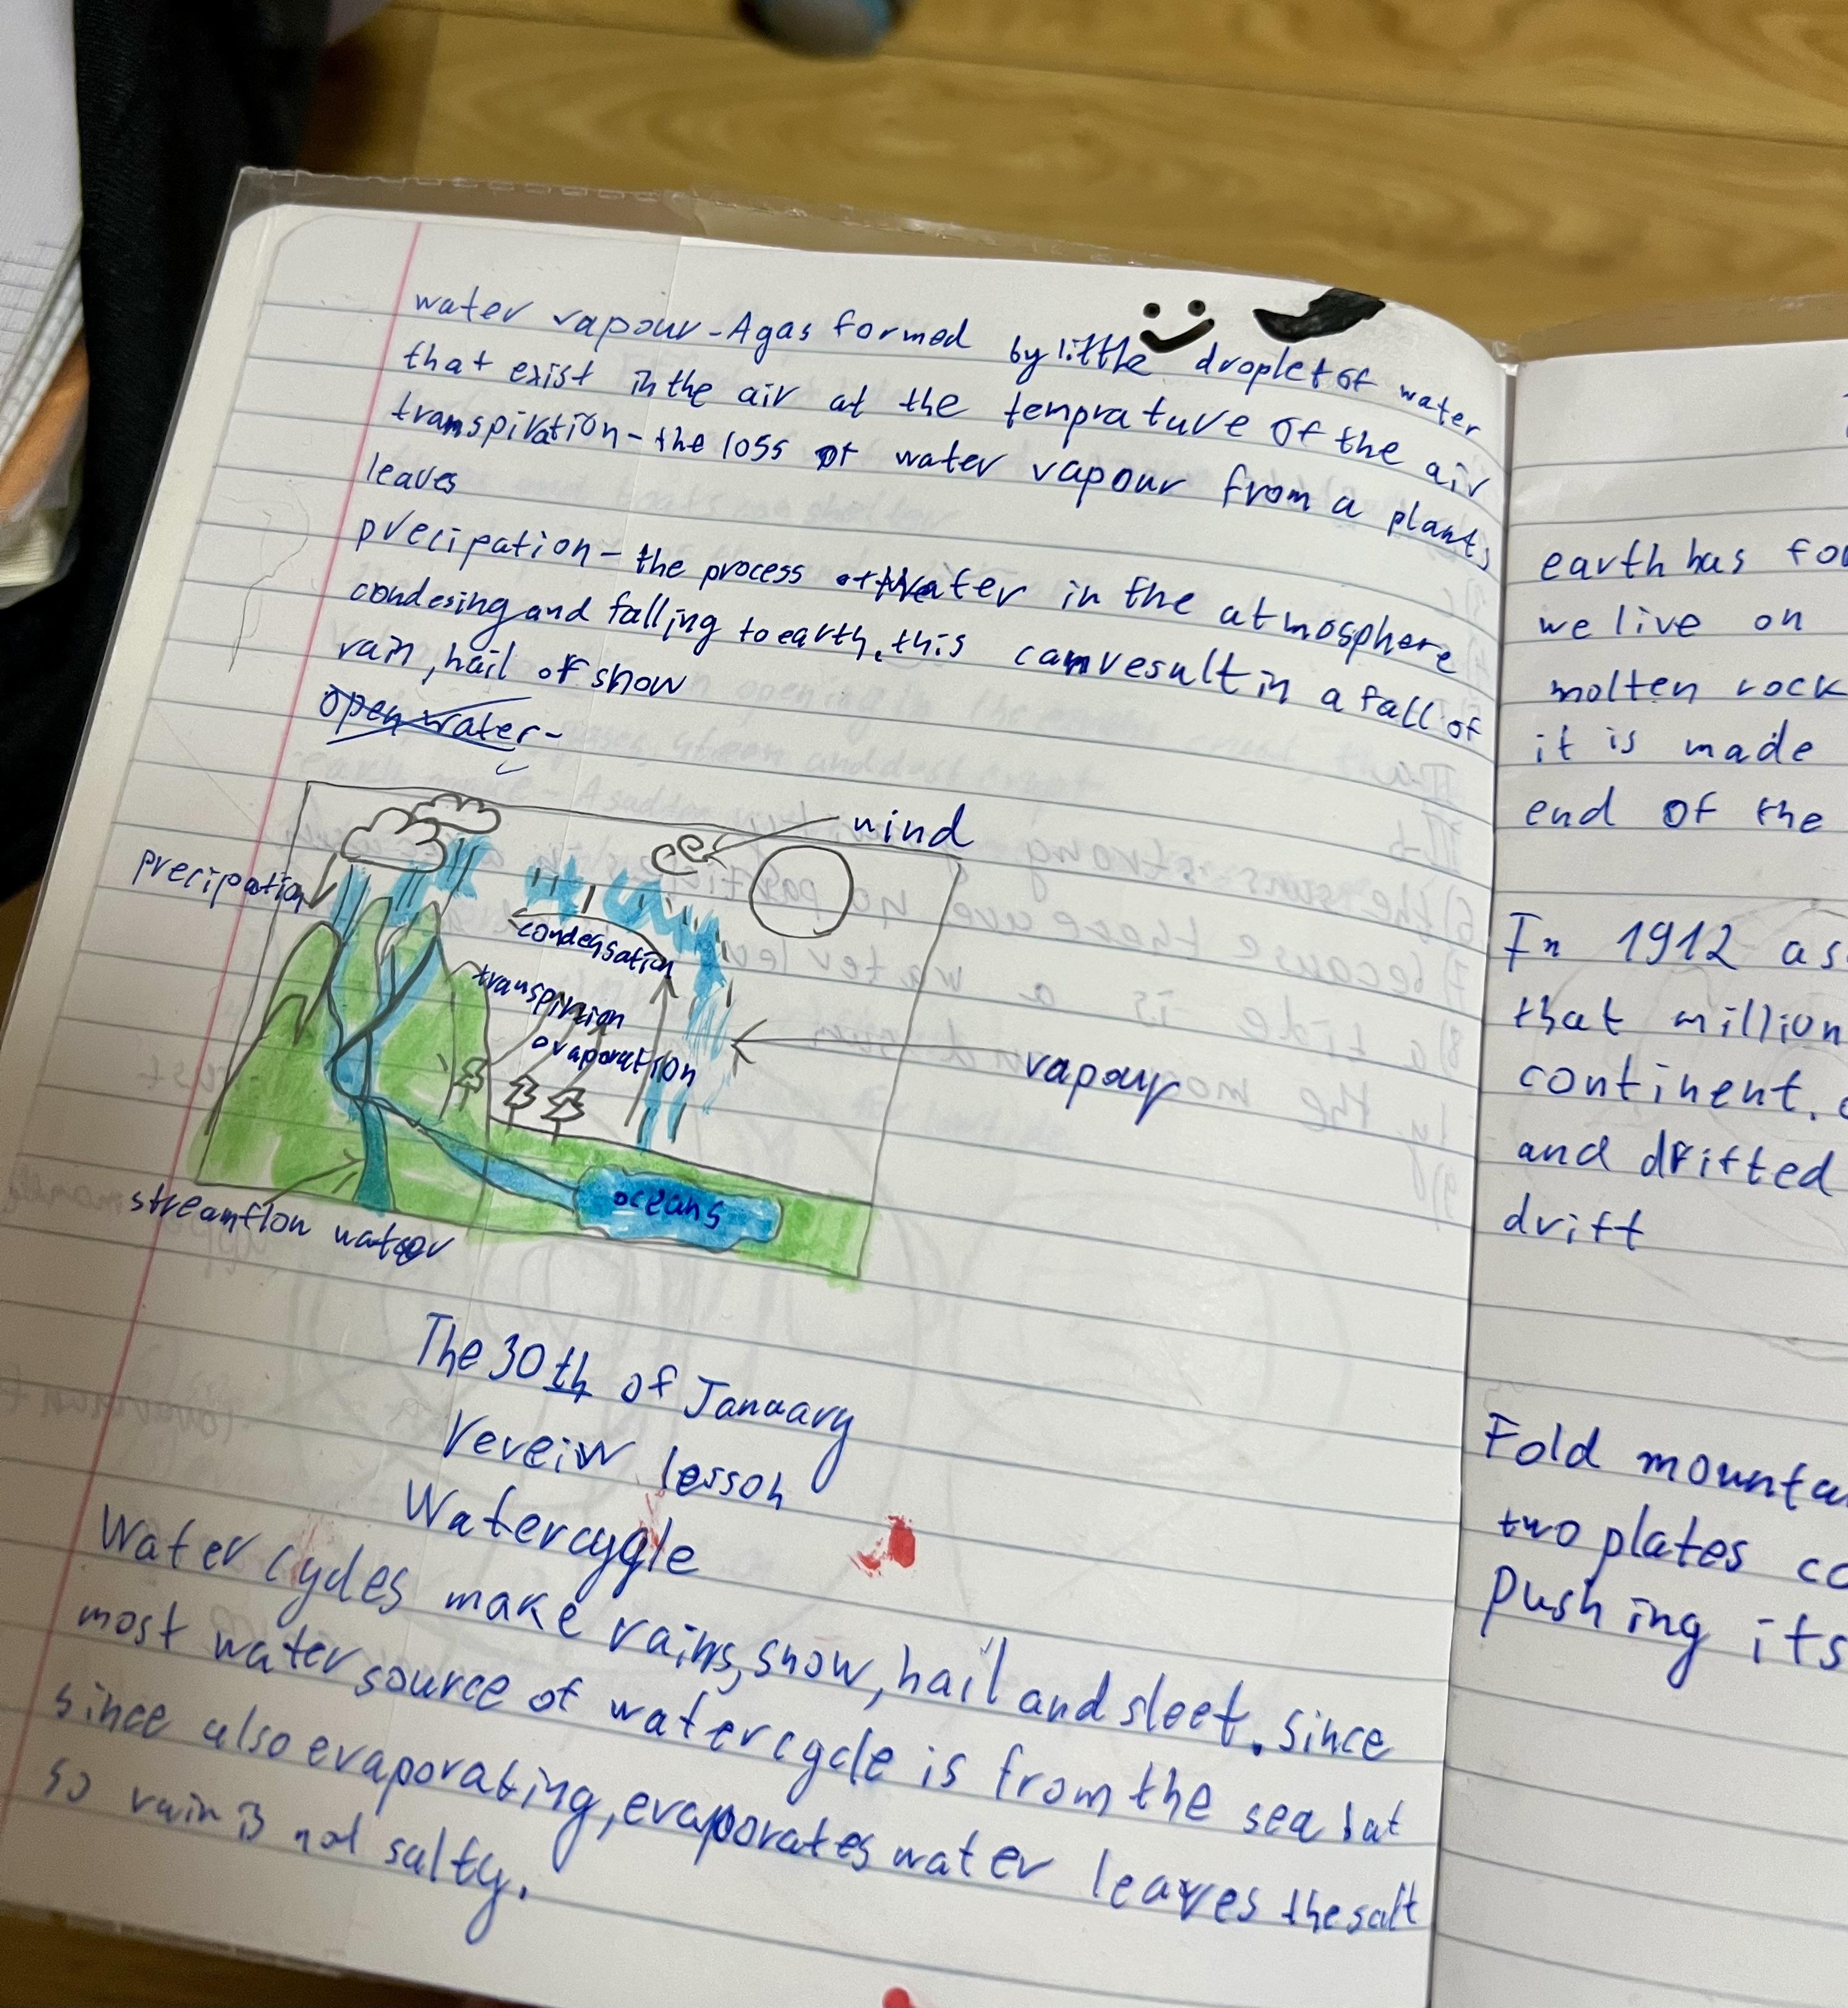 water vapour - A gas formed by little droplet of water
that exist in the air at the temprature of the air
transpiration - the loss of water vapour from a plants
leaves
precipation - the process of water in the atmosphere
condesing and falling to earth, this can result in a fall of
rain, hail or snow
open water -
wind
precipation
condensation
transpirtion
evaporation
vapour
oceans
streamflow water
The 30th of January
Vereiw lesson
Watercycle
Water cycles make rains, snow, hail and sleet. Since
most water source of watercycle is from the sea but
since also evaporating, evaporates water leaves the salt
so rain is not salty.
earth has fo
we live on
molten rock
it is made
end of the
In 1912 as
that million
continent.
and drifted
drift
Fold mounta
two plates co
pushing its